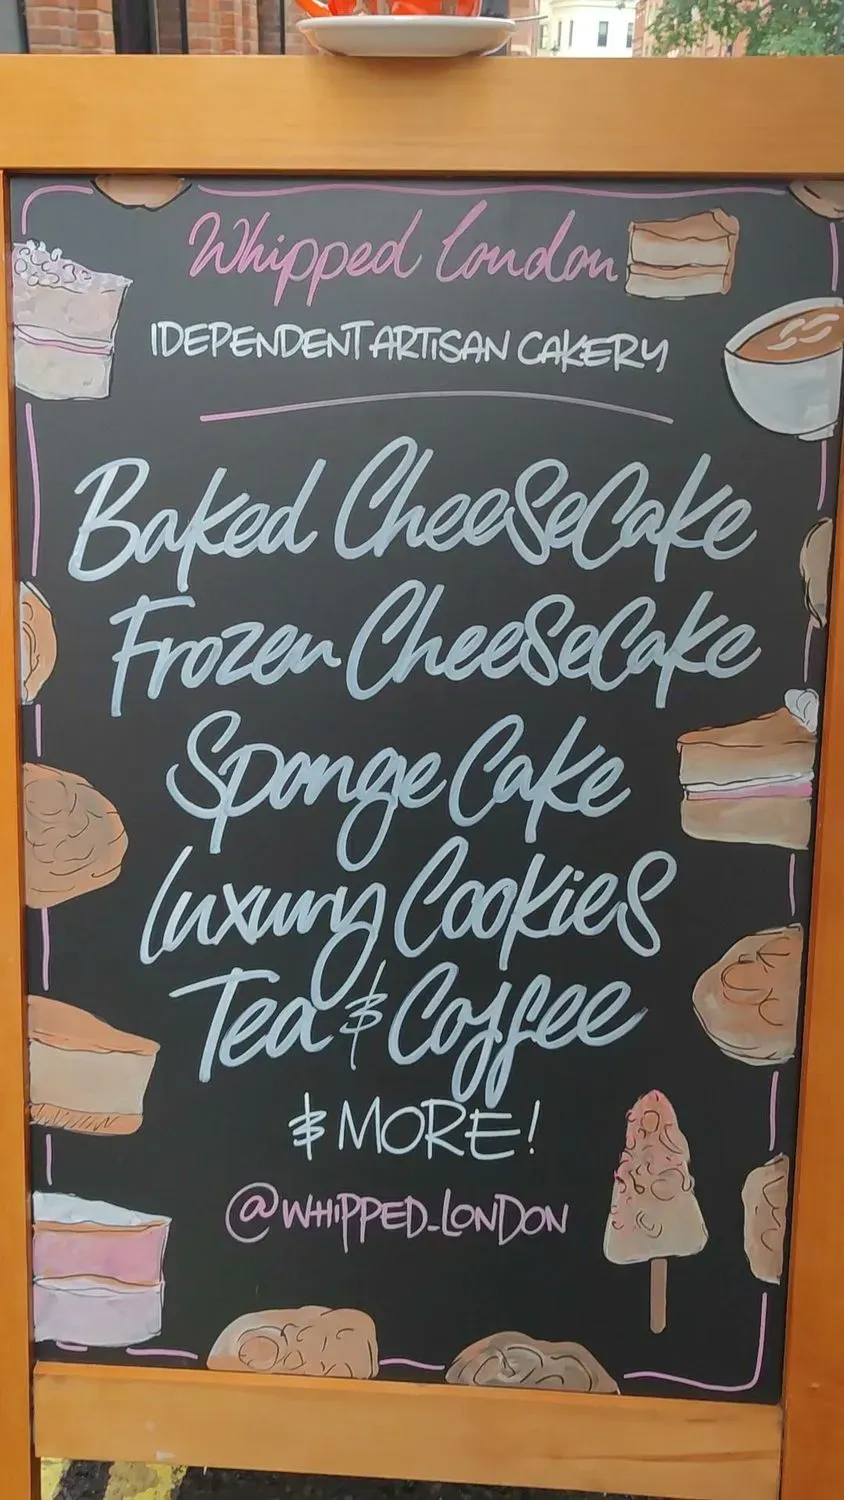 Whipped London
IDEPENDENT ARTISAN CAKERY
Baked CheeseCake
Frozen CheeseCake
Sponge Cake
Luxury Cookies
Tea & Coffee
& MORE!
@WHIPPED_LONDON